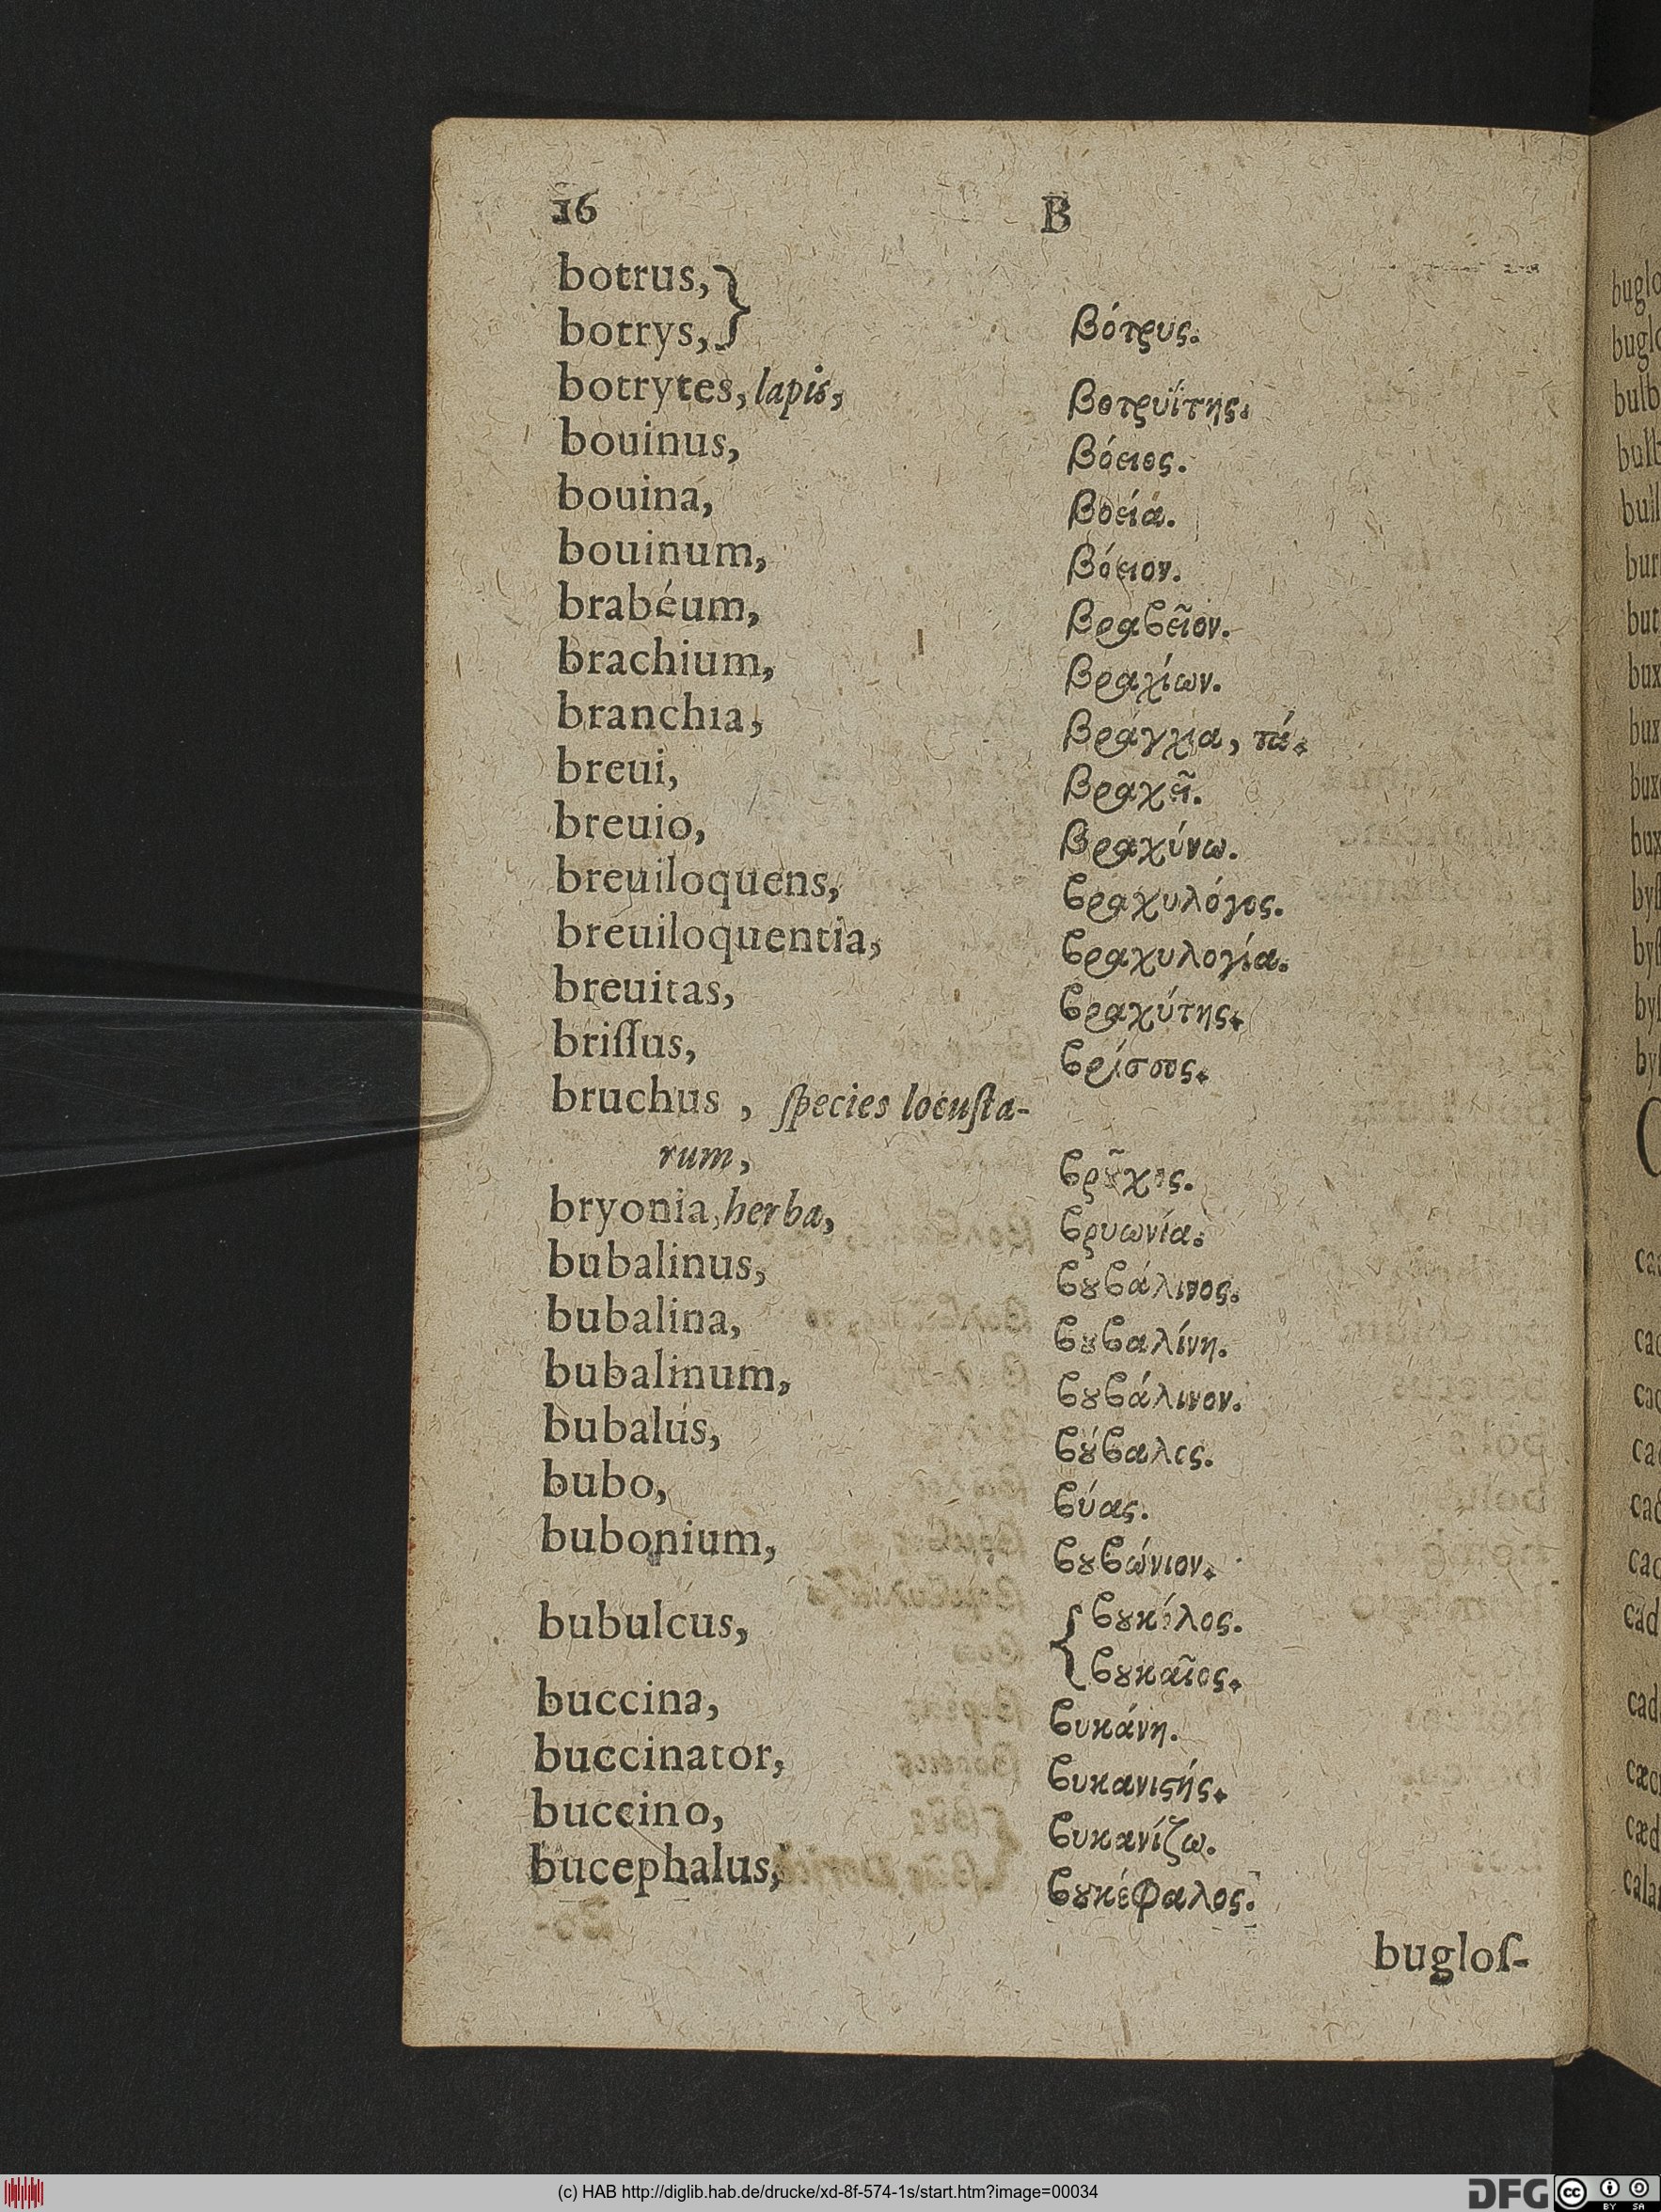 16 B
botrus,
botrys,} βότρυς.
botrytes, lapis, βοτρυΐτης.
bouinus, βόειος.
bouina, βοεία.
bouinum, βόειον.
brabéum, βραϐεῖον.
brachium, βραχίων.
branchia, βράγχια, τά.
breui, βραχεῖ.
breuio, βραχύνω.
breuiloquens, ϐραχυλόγος.
breuiloquentia, ϐραχυλογία.
breuitas, ϐραχύτης.
briſſus, ϐρίσσος.
bruchus, ſpecies locuſta-
rum, ϐρȣ͂χος.
bryonia, herba, ϐρυωνία.
bubalinus, ϐȣϐάλινος.
bubalina, ϐȣϐαλίνη.
bubalinum, ϐȣϐάλινον.
bubalus, ϐȣ́ϐαλος.
bubo, ϐύας.
bubonium, ϐȣϐώνιον.
bubulcus, {ϐȣκόλος.
ϐȣκαῖος.
buccina, ϐυκάνη.
buccinator, ϐυκανιϛής.
buccino, ϐυκανίζω.
bucephalus, ϐȣκέφαλος.
bugloſ-
(c) HAB http://diglib.hab.de/drucke/xd-8f-574-1s/start.htm?image=00034
DFG
cc BY SA